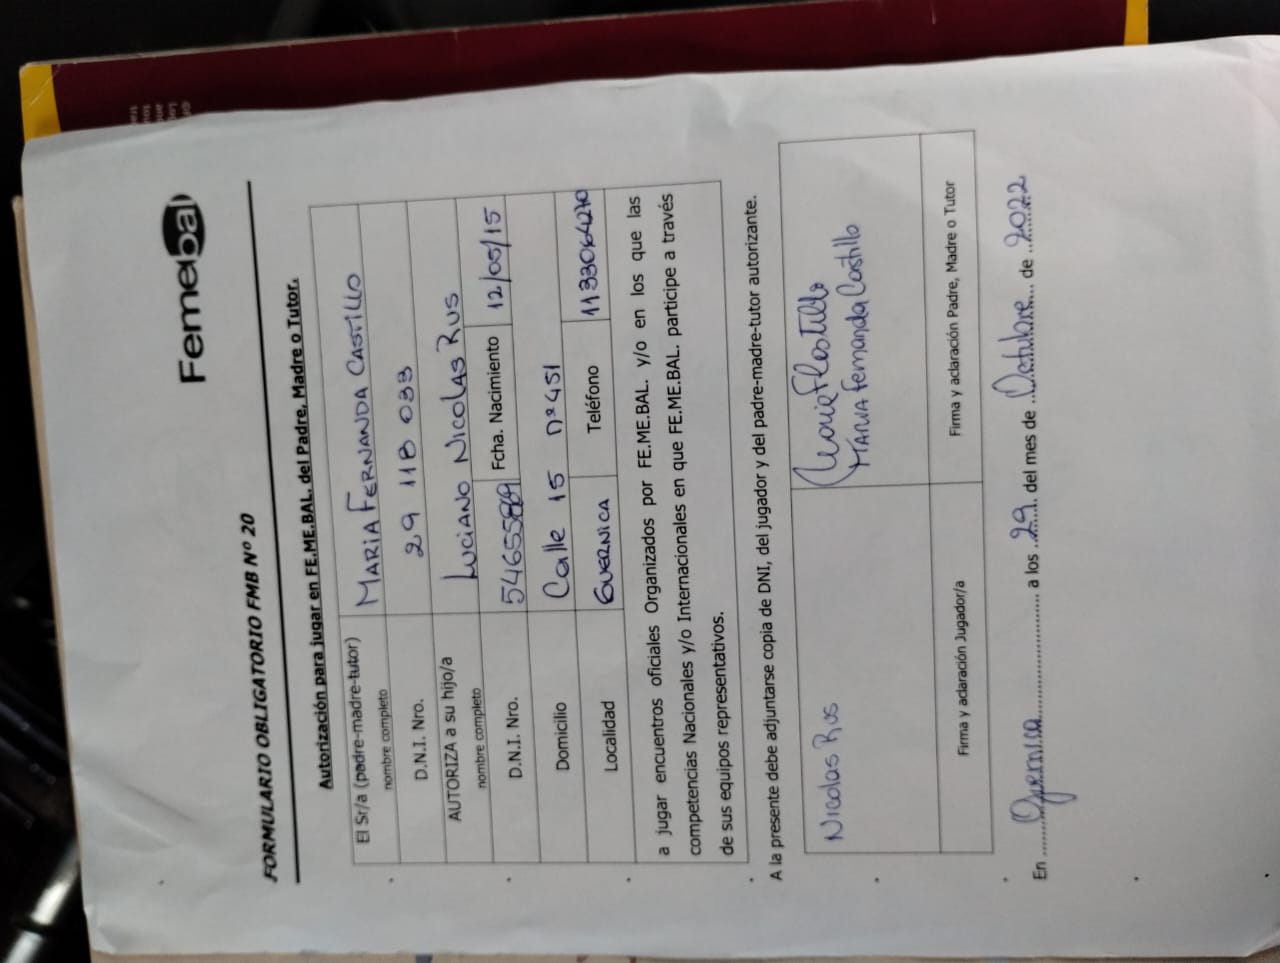 Femebal
FORMULARIO OBLIGATORIO FMB Nº 20
Autorización para jugar en FE.ME.BAL. del Padre, Madre o Tutor.
El Sr/a (padre-madre-tutor) nombre completo MARIA FERNANDA CASTILLO
D.N.I. Nro. 29 118 033
AUTORIZA a su hijo/a nombre completo LUCIANO NICOLAS RUS
D.N.I. Nro. Fcha. Nacimiento 12/05/15
Domicilio Calle 15 nº 451
Localidad GUERNICA Teléfono 1133064270
a jugar encuentros oficiales Organizados por FE.ME.BAL. y/o en los que las
competencias Nacionales y/o Internacionales en que FE.ME.BAL. participe a través
de sus equipos representativos.
A la presente debe adjuntarse copia de DNI, del jugador y del padre-madre-tutor autorizante.
NICOLAS RUS
MARIA Fernanda Castillo
Firma y aclaración Jugador/a Firma y aclaración Padre, Madre o Tutor
En Guernica a los 29 del mes de Octubre de 2022